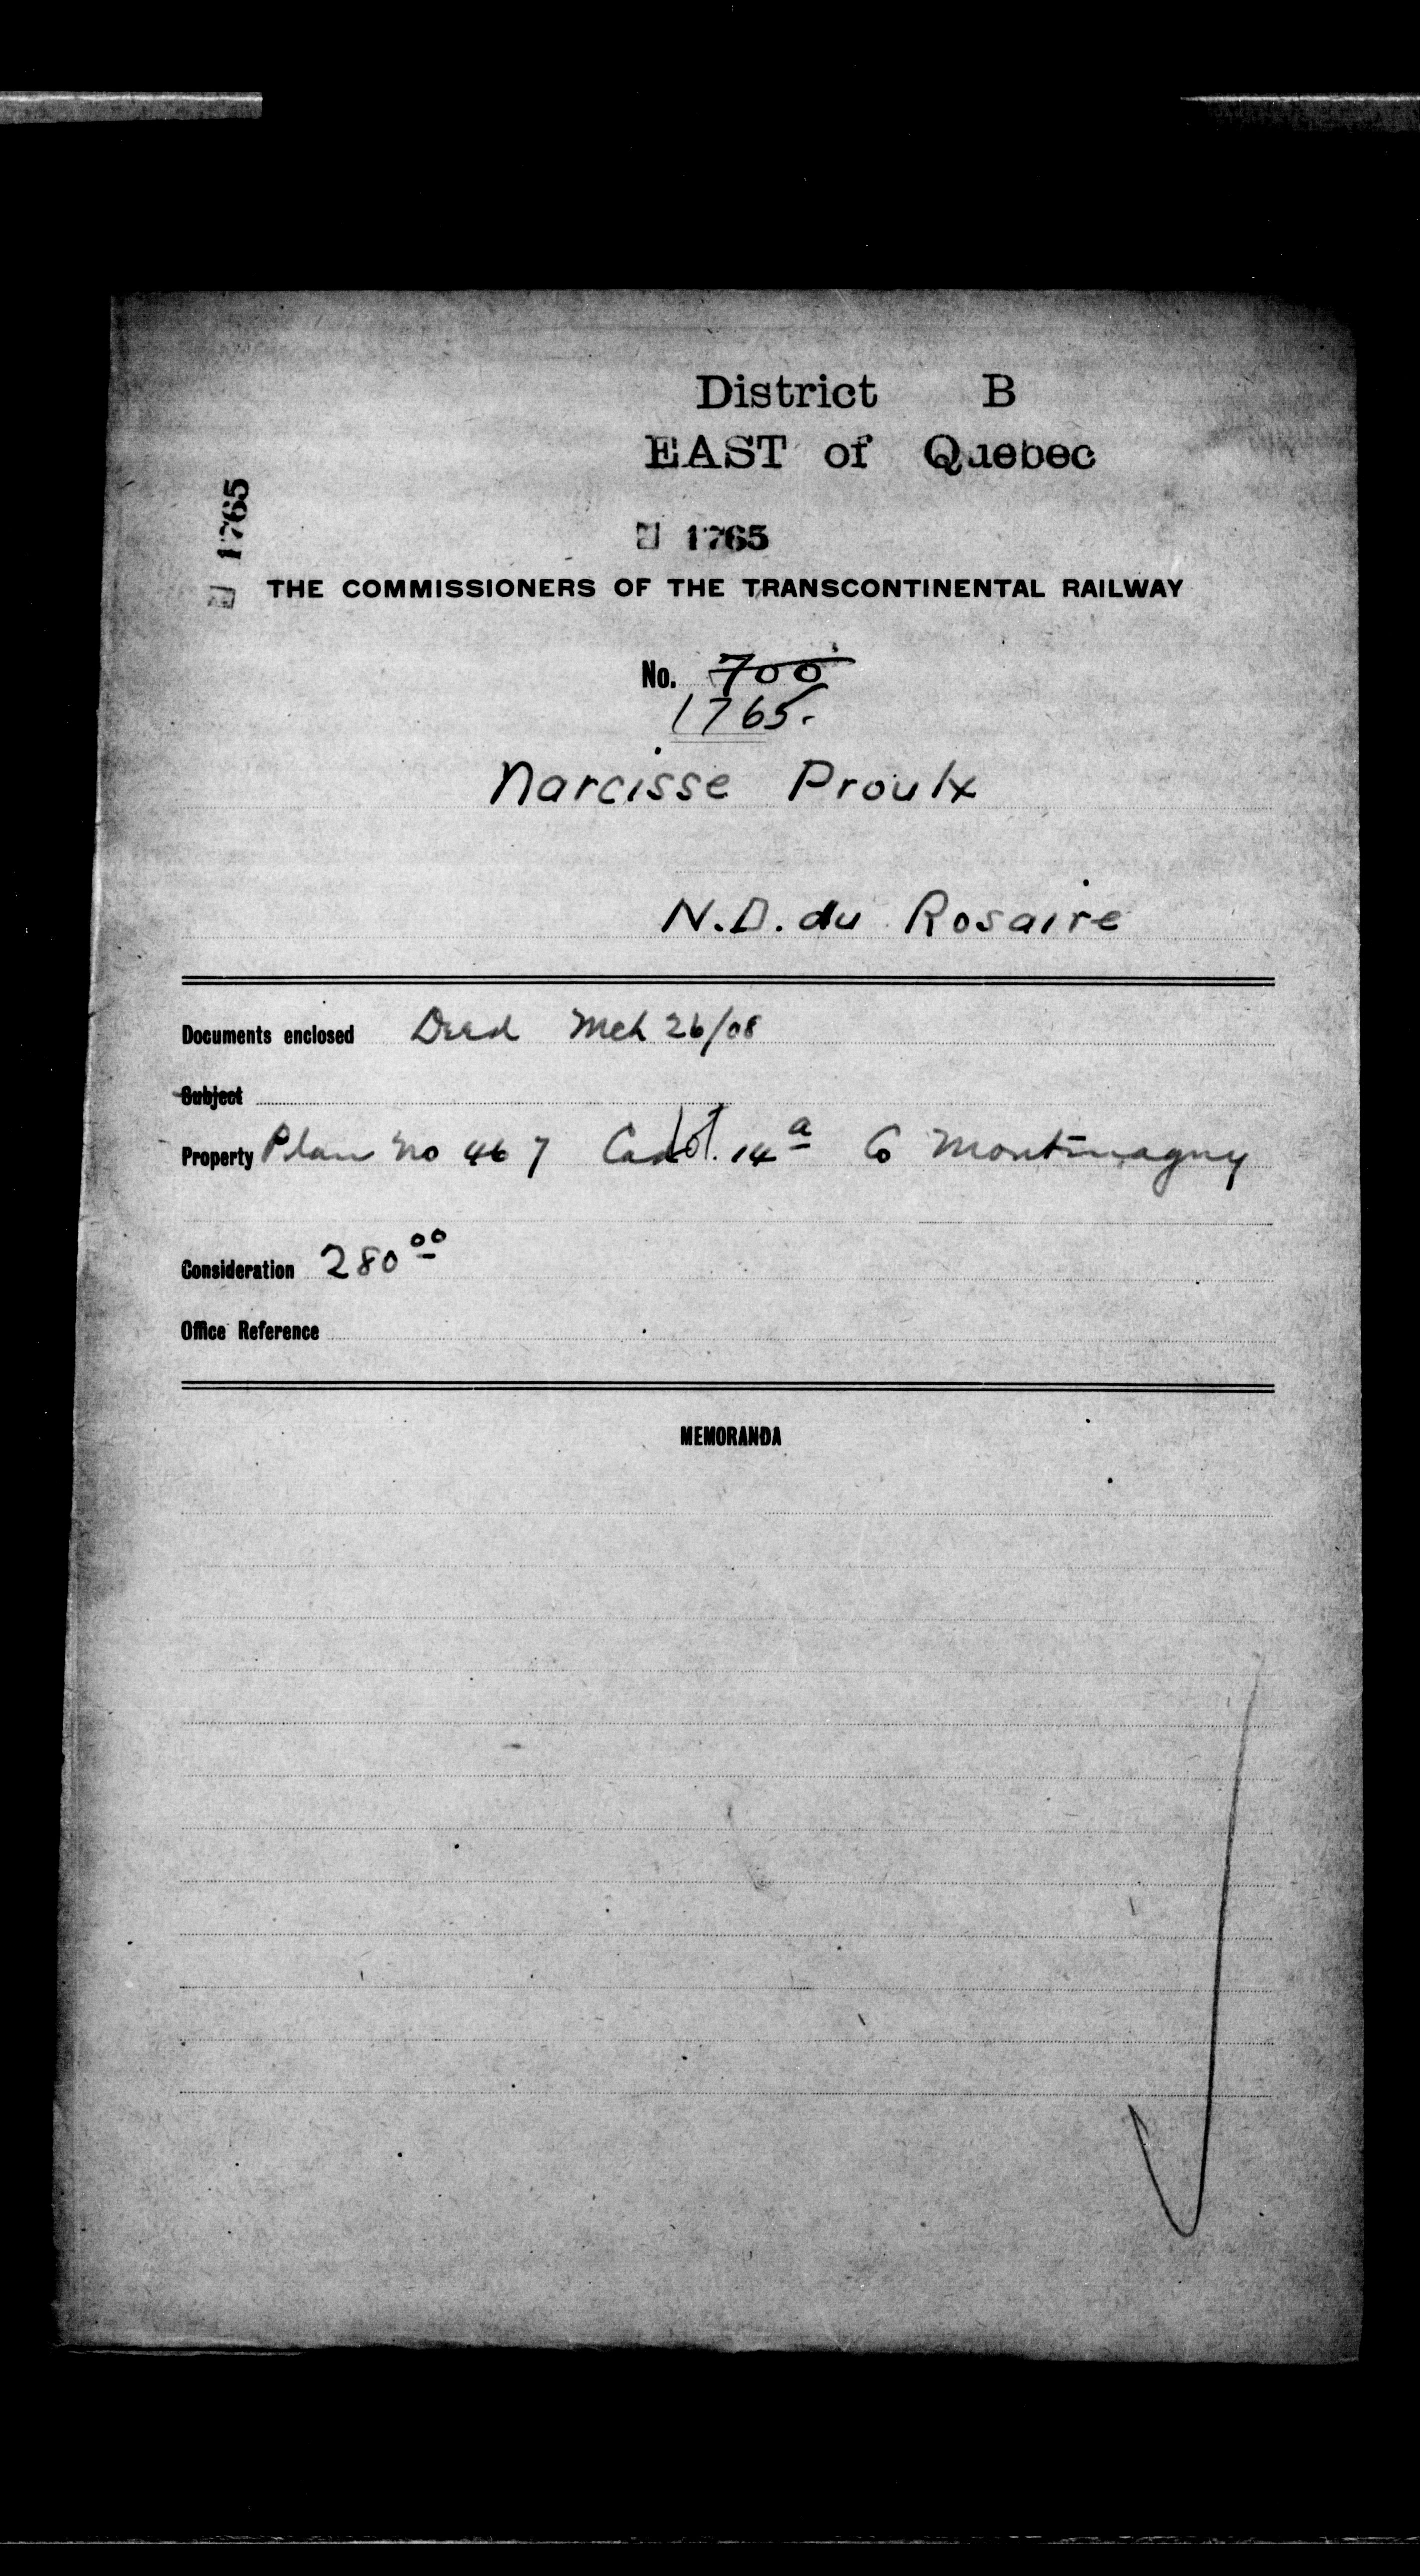 District B
EAST of Quebec
1765
1765
THE COMMISSIONERS OF THE TRANSCONTINENTAL RAILWAY
No. 700
1765.
Narcisse Proulx
N.D. du Rosaire
Documents enclosed Deed Mch 26/08
Subject
Property Plan No 467 Lot. 14a Co Montmagny
Consideration 280 00
Office Reference
MEMORANDA